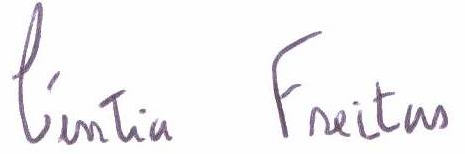 Cíntia Freitas